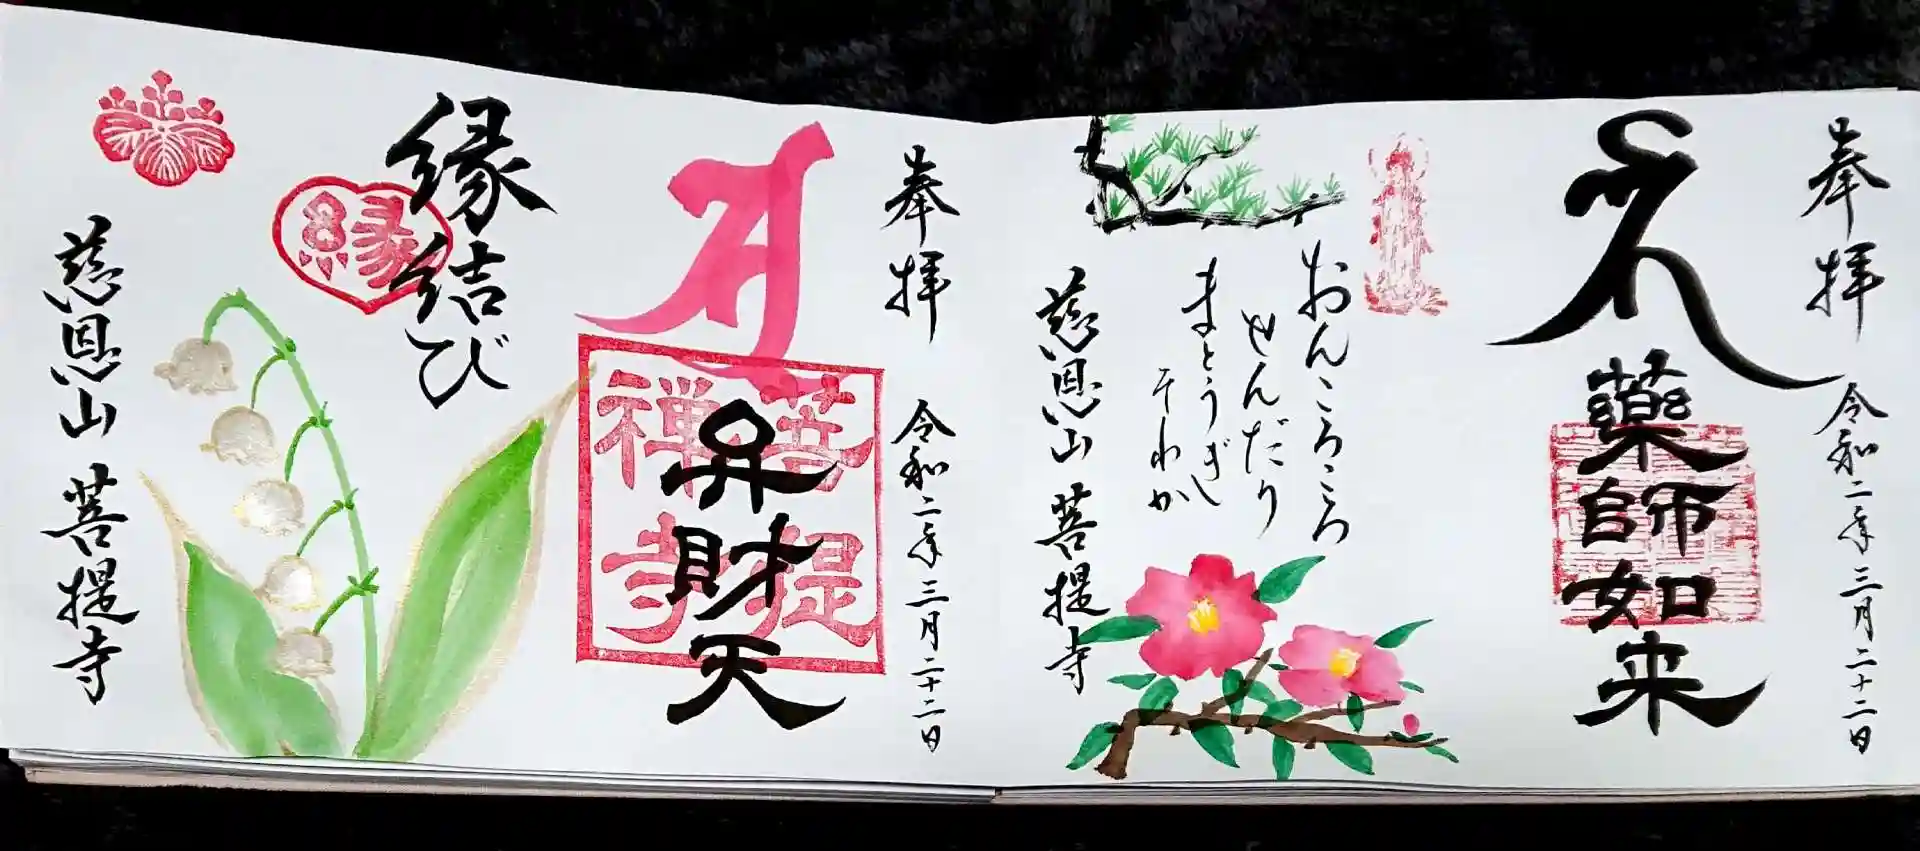 奉拝
令和二年三月二十二日
薬師如来
おんころころ
せんだり
まとうぎし
そわか
慈恩山 菩提寺
奉拝
令和二年三月二十二日
弁財天
菩提
禅寺
縁結び
縁
慈恩山 菩提寺